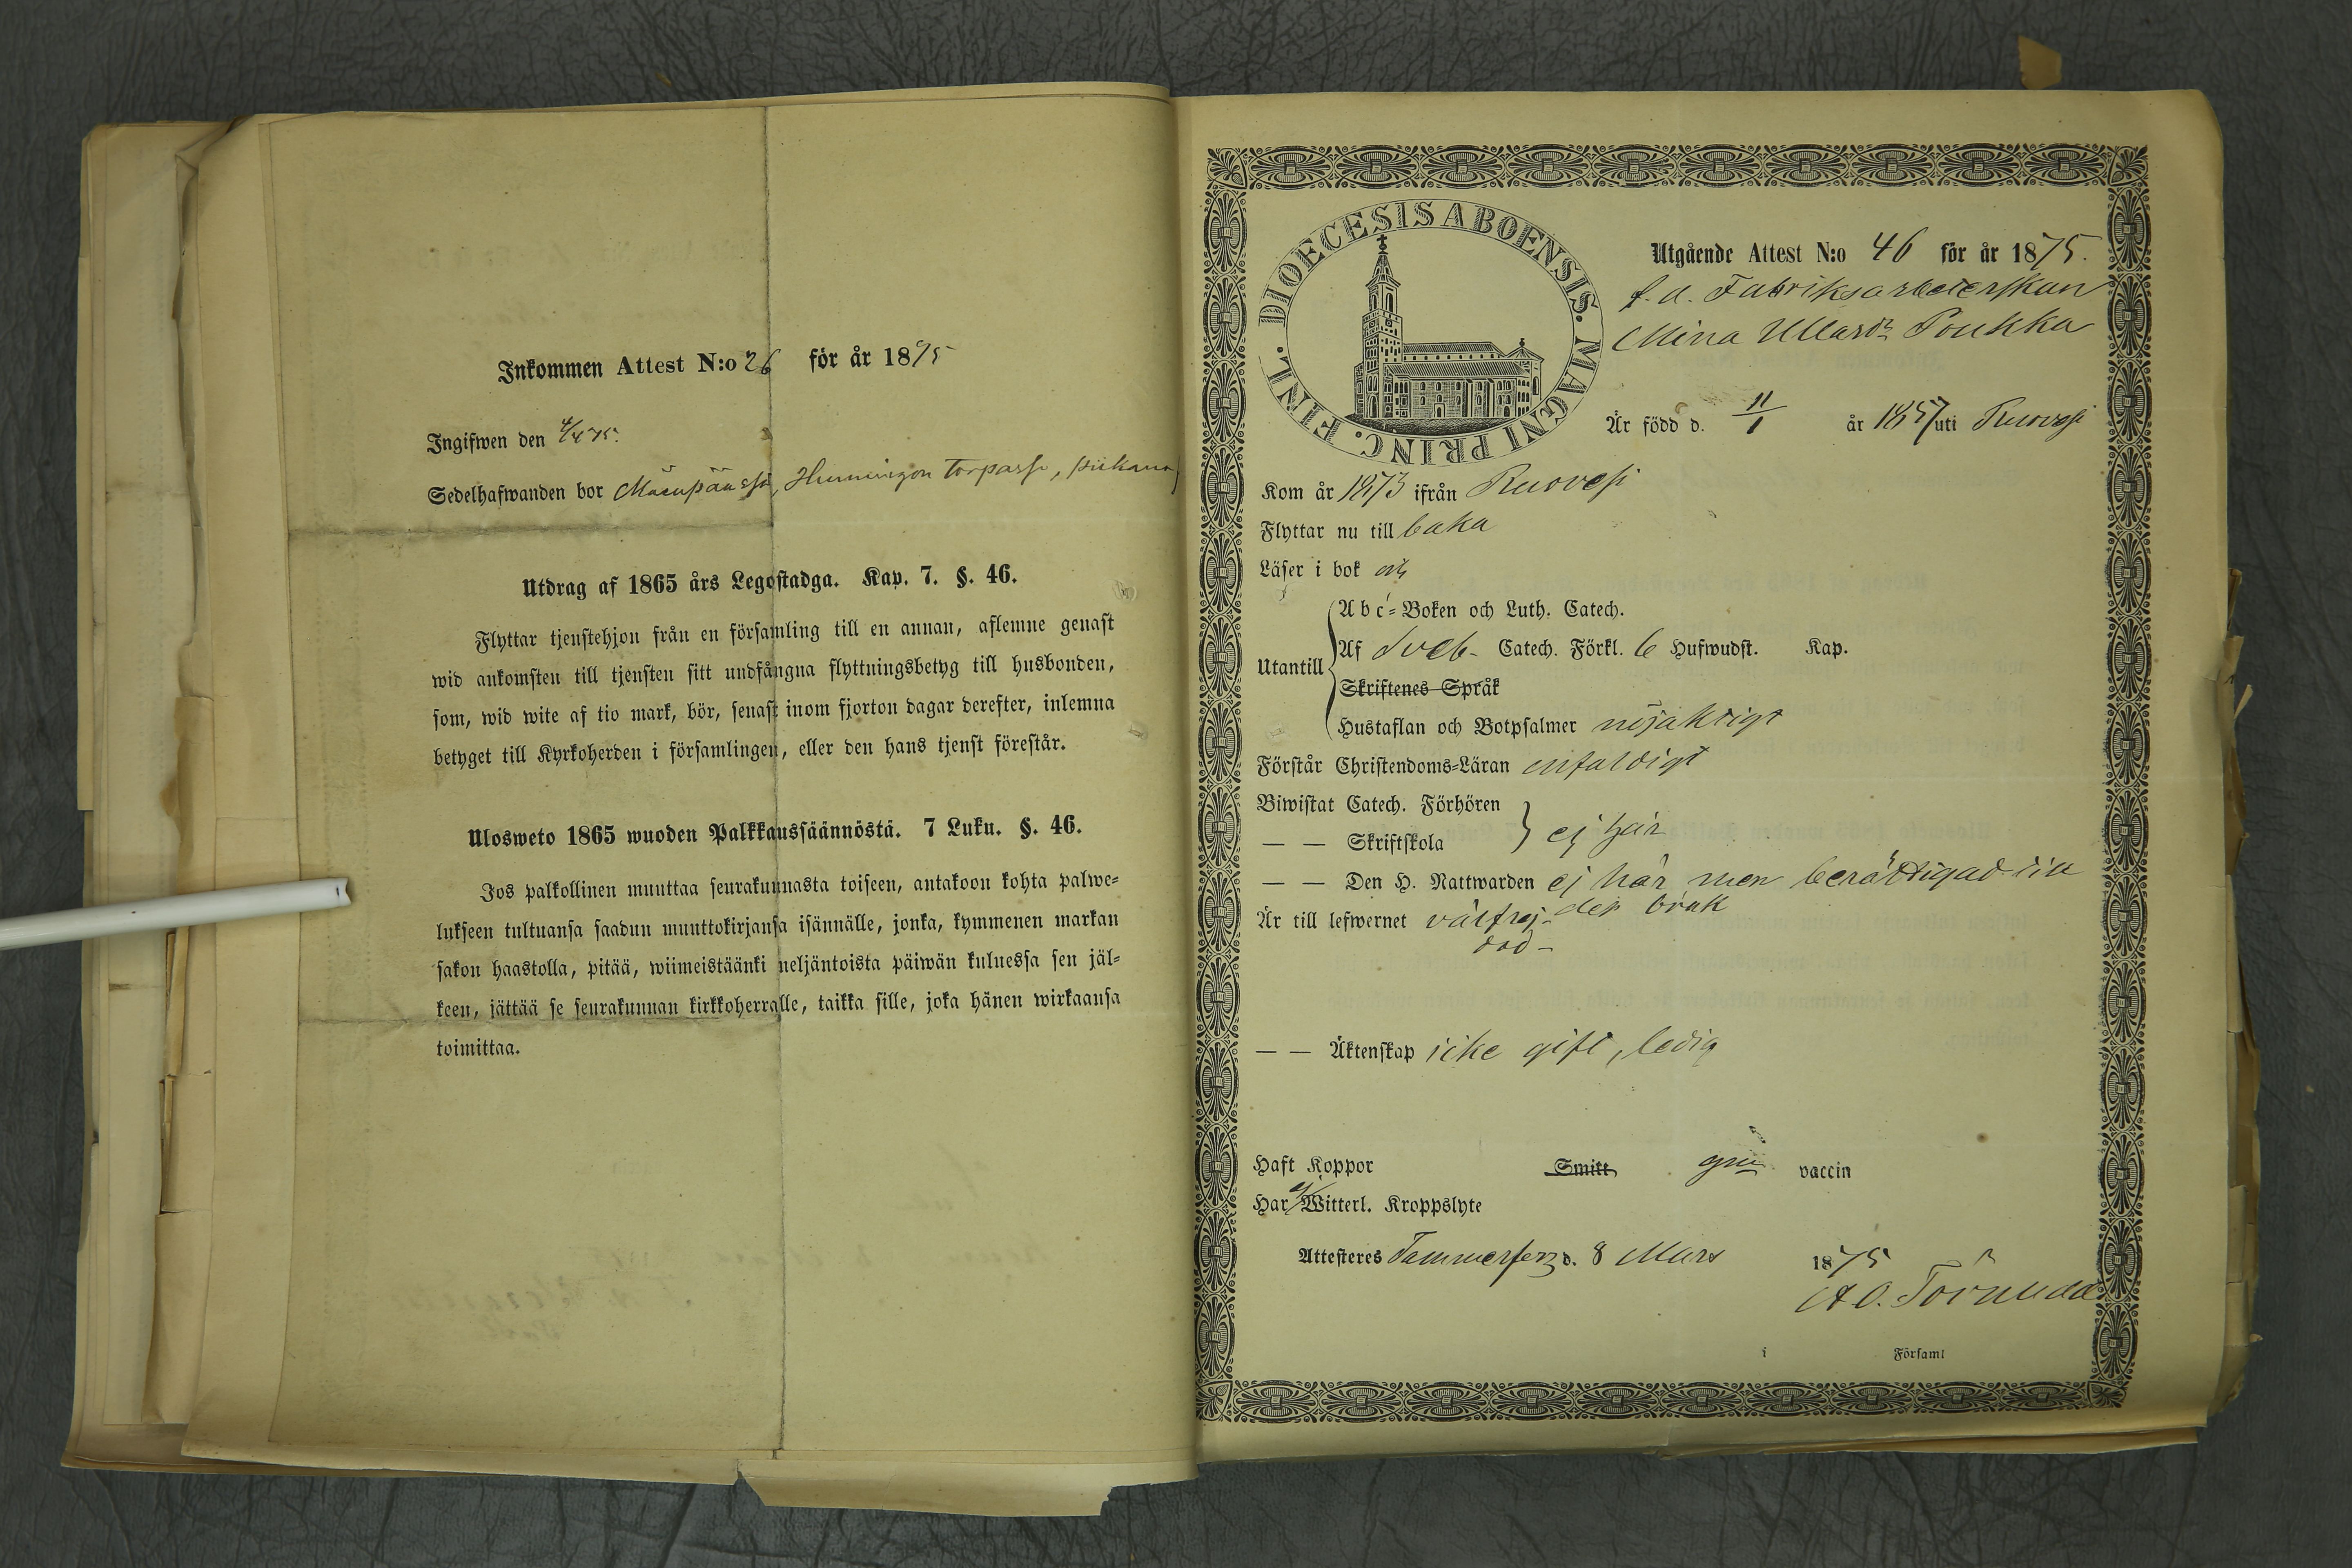 Inkommen Attest N:o 26 för år 1875
Ingifwen den 4/4 75.
Sedelhafwanden bor Mäenpäässä, Hemmingon torpassa, piikana
Utdrag af 1865 års Legostadga. Kap. 7. §. 46.
Flyttar tjenstehjon från en församling till en annan, aflemne genast
wid ankomsten till tjensten sitt undfångna flyttningsbetyg till husbonden,
som, wid wite af tio mark, bör, senast inom fjorton dagar derefter, inlemna
betyget till Kyrkoherden i församlingen, eller den hans tjenst förestår.
Ulosweto 1865 wuoden Palkkaussäännöstä. 7 Luku. §. 46.
Jos palkollinen muuttaa seurakunnasta toiseen, antakoon kohta palwe-
lukseen tultuansa saadun muuttokirjansa isännälle, jonka, kymmenen markan
sakon haastolla, pitää, wiimeistäänki neljäntoista päiwän kuluessa sen jäl-
keen, jättää se seurakunnan kirkkoherralle, taikka sille, joka hänen wirkaansa
toimittaa.
DIOECESIS ABOENSIS. MAGNI PRINC. FINL.
Utgående Attest N:o 46 för år 1875.
f.d. Fabriksarbeterskan
Mina Poukka
Är född d. 11/1 år 1857 uti Ruovesi
Kom år 1873 ifrån Ruovesi
Flyttar nu till baka
Läser i bok
Abc-Boken och Luth. Catech.
Utantill
Af Sveb. Catech. Förkl. 6 Hufwudst. Kap.
Skriftenes Språk
Hustaflan och Botpsalmer nöjaktigt
Förstår Christendoms-Läran enfaldigt
Biwistat Catech. Förhören
— — Skriftskola ej här
— — Den H. Nattwarden ej här men berättigad till
dess bruk
Är till lefwernet välfrej-
dad -
— — Äktenskap icke gift, ledig
Haft Koppor Smitt vaccin
Har ej Witterl. Kroppslyte
Attesteres Tammerfors d. 8 Mars 1875
A O. Törnudd
i Församl